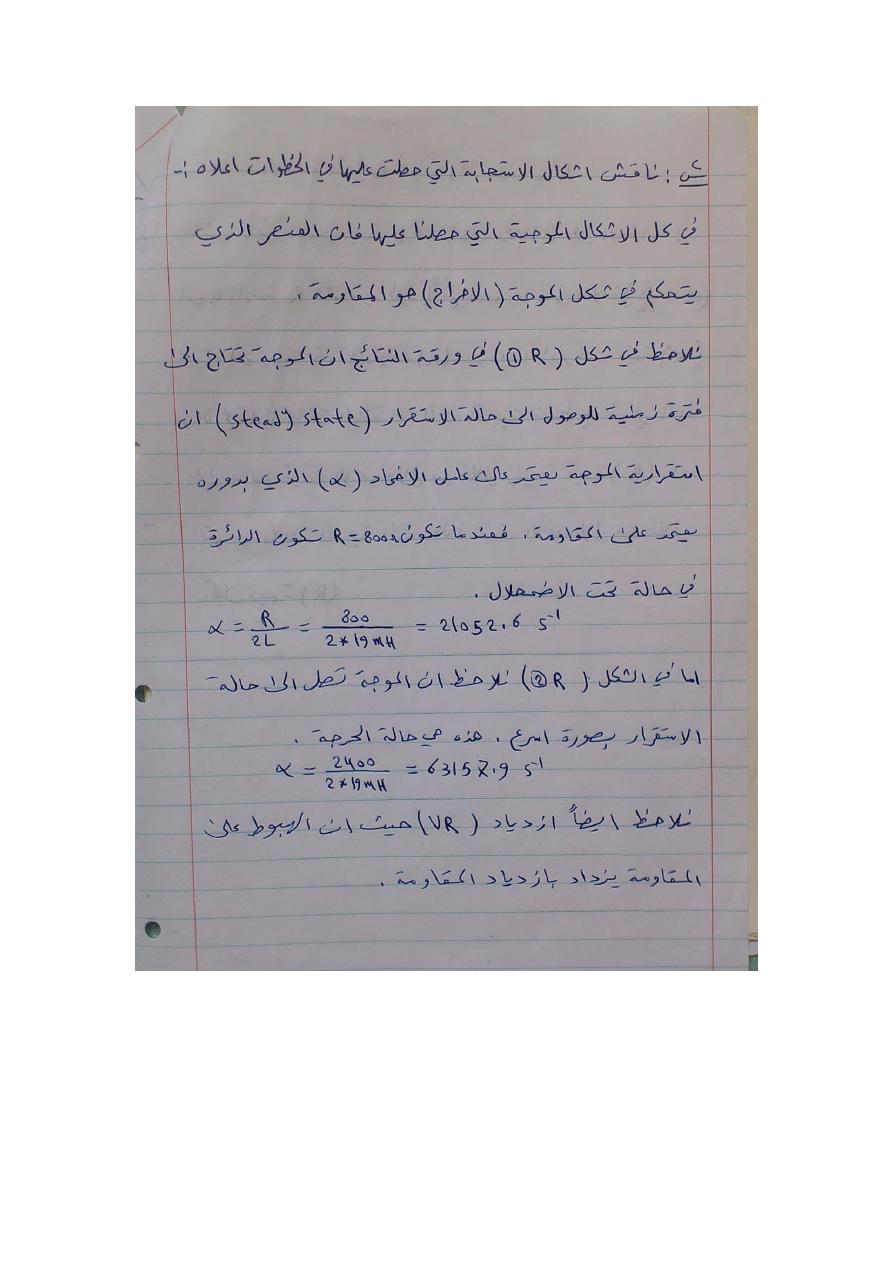 س: ناقش اشكال الاستجابة التي حصلت عليها في الخطوات اعلاه :-
في كل الاشكال الموجية التي حصلنا عليها فان العنصر الذي
يتحكم في شكل الموجة (الاخراج) هو المقاومة .
نلاحظ في شكل (R ①) في ورقة النتائج ان الموجة تحتاج الى
فترة زمنية للوصول الى حالة الاستقرار (steady state) ان
استقرارية الموجة يعتمد على عامل الاخماد (α) الذي بدوره
يعتمد على المقاومة . فعندما تكون R=800Ω تكون الدائرة
في حالة تحت الاضمحلال .
α = R/2L = 800/(2×19mH) = 21052.6 S⁻¹
اما في الشكل (R ②) نلاحظ ان الموجة تصل الى حالة
الاستقرار بصورة اسرع . هذه هي حالة الحرجة .
α = 2400/(2×19mH) = 63157.9 S⁻¹
نلاحظ ايضاً ازدياد (VR) حيث ان الهبوط على
المقاومة يزداد بازدياد المقاومة .